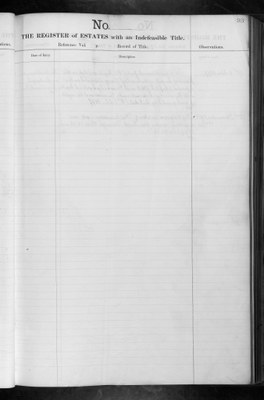 No
THE REGISTER of ESTATES with an Indefeasible Title.
Reference Vol. Record of Title. Observations.
Date of Entry Description